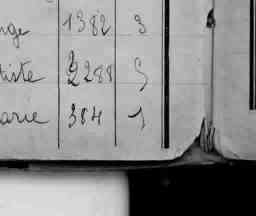 nge 1382 3
tiste 2288 5
arie 384 1